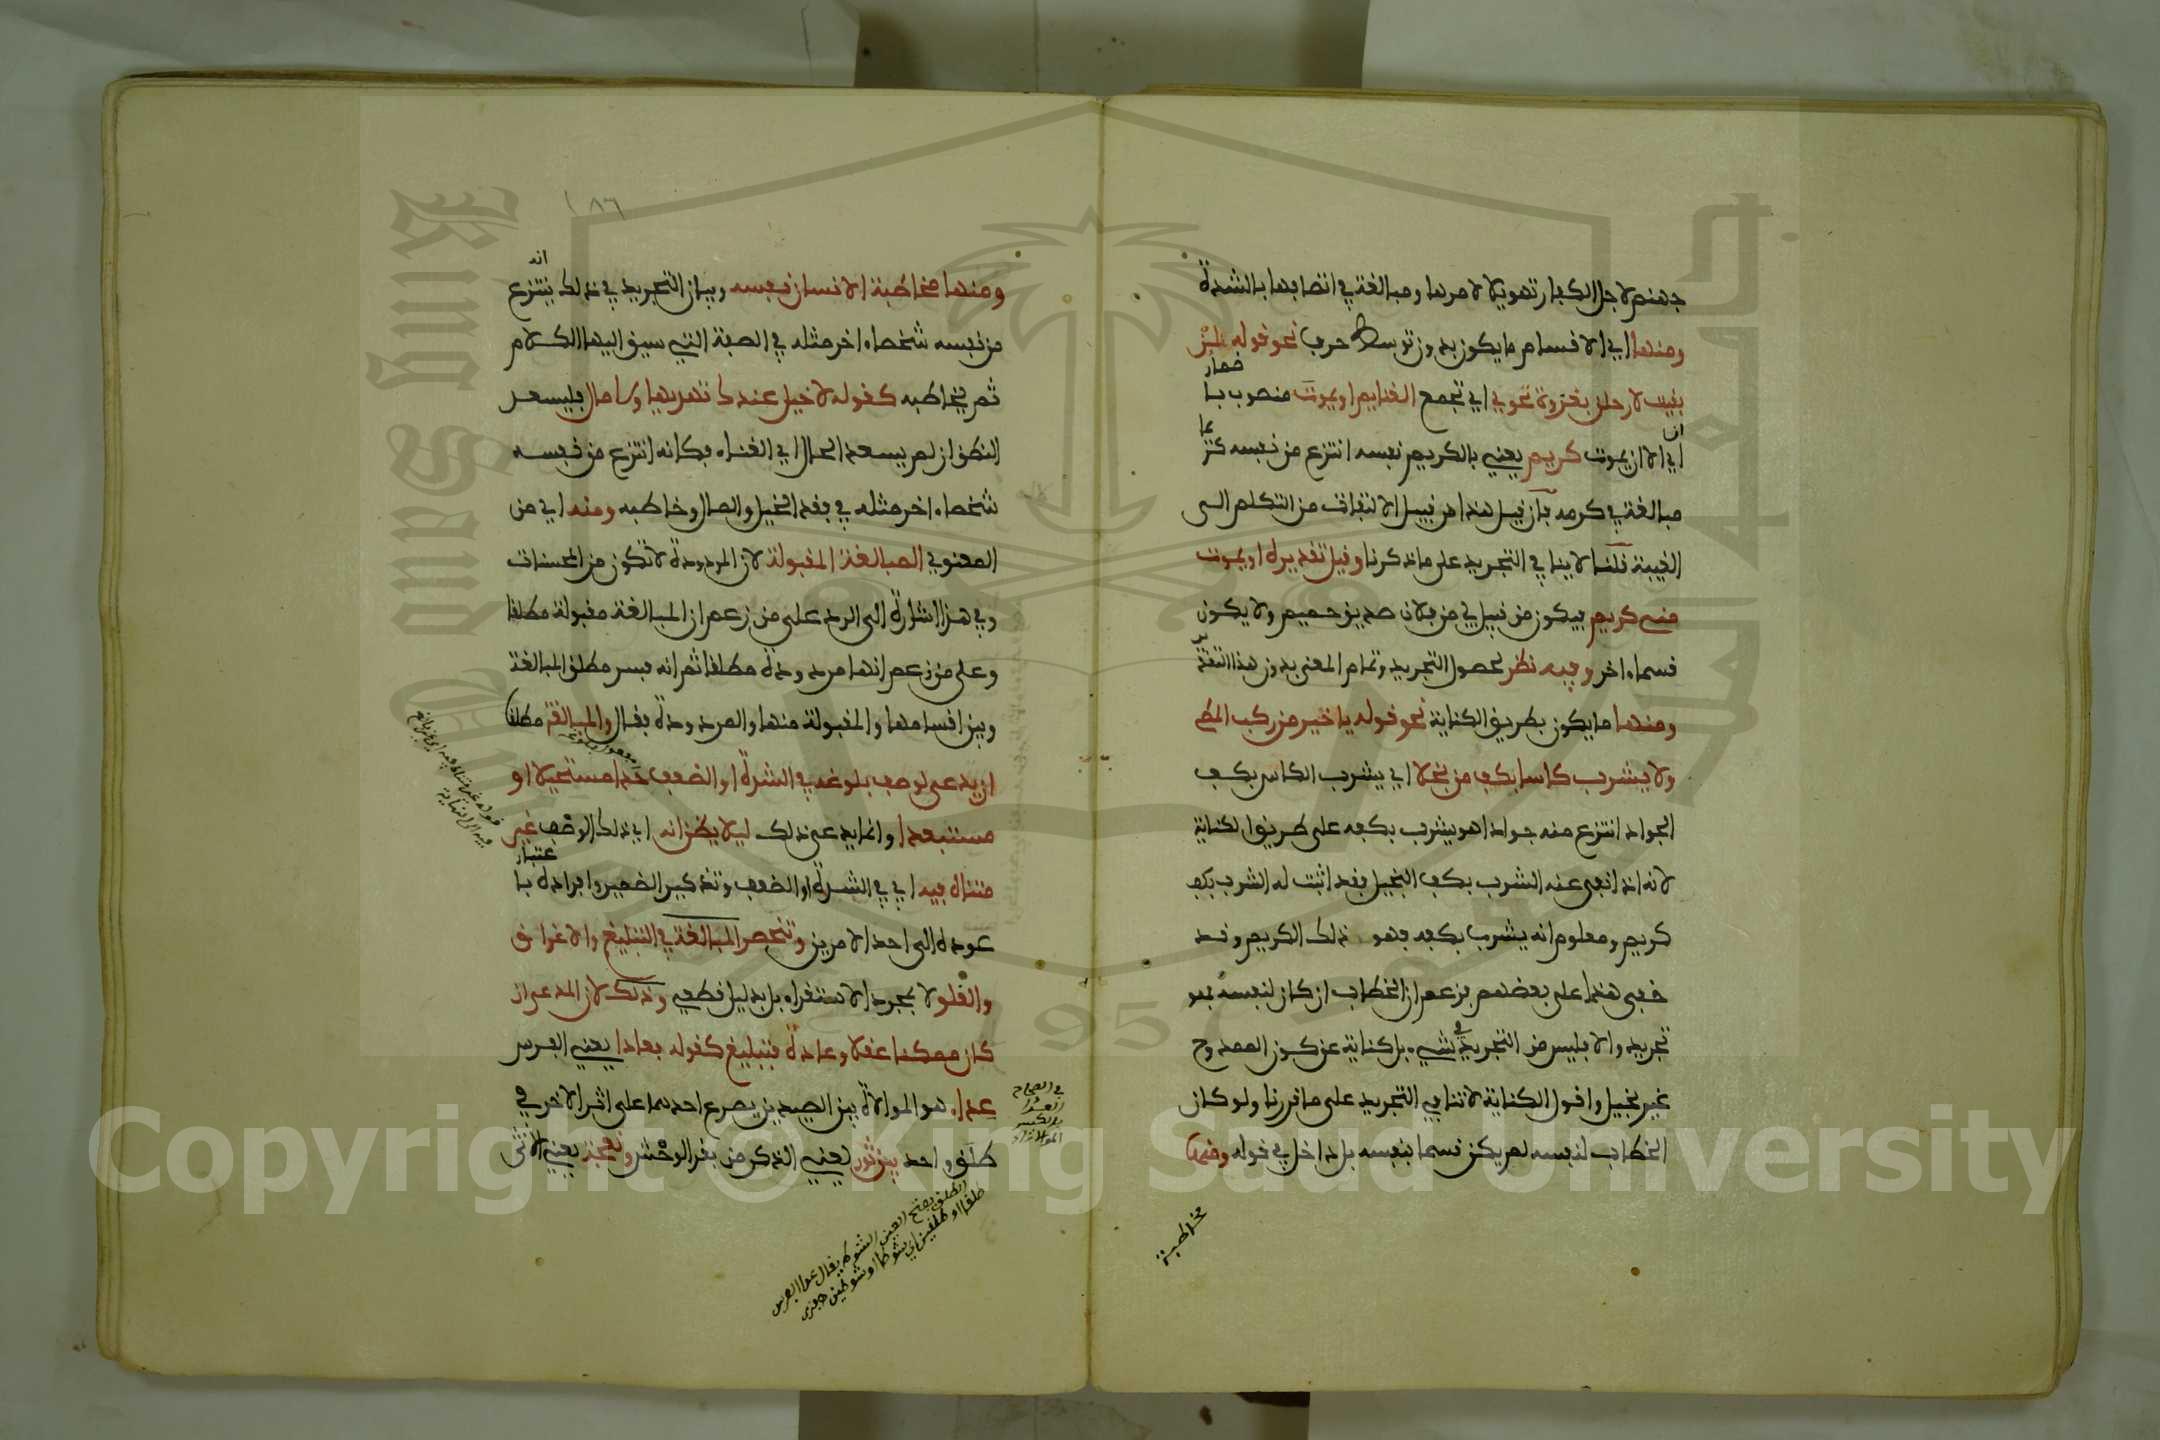 جهنم لاجل الكفار تهويلا لامرها ومبالغة في اتصافها بالشدة
ومنها اي الاقسام ما يكون بدون توسط حرف نحو قوله فلئن
بقيت لارحلن بغزوة تحوي اي تجمع الغنايم او يموت منصوب باضمار ان
اي الا ان يموت كريم يعني بالكريم نفسه انتزع من نفسه كريما
مبالغة في كرمه فان قيل هذا من قبيل الالتفات من التكلم الى
الغيبة قلنا لا ينافي التجريد على ما ذكرنا وقيل تقديره او يموت
مني كريم فيكون من قبيل لي من فلان صديق حميم ولا يكون
قسما اخر وفيه نظر لحصول التجريد وتمام المعنى بدون هذا التقدير
ومنها ما يكون بطريق الكناية نحو قوله يا خير من ركب المطي
ولا يشرب كاسا بكف من بخلا اي يشرب الكاس بكف
الجواد انتزع منه جوادا هو يشرب بكفه على طريق الكناية
لانه اذا نفى عنه الشرب بكف البخيل فقد اثبت له الشرب بكف
كريم ومعلوم انه يشرب بكفه فهو ذلك الكريم وقد
خفي هذا على بعضهم فزعم ان الخطاب ان كان لنفسه فهو
تجريد والا فليس من التجريد في شيء بل كناية عن كون الممدوح
غير بخيل واقول الكناية لا تنافي التجريد على ما قررنا ولو كان
الخطاب لنفسه لم يكن قسما بنفسه بل داخل في قوله ومنها
مخاطبة
١٨٦
ومنها مخاطبة الانسان نفسه وبيان التجريد في ذلك انه ينتزع
من نفسه شخصا اخر مثله في الصفة التي سيق اليها الكلام
ثم يخاطبه كقوله لا خيل عندك تهديها ولا مال فليسعد
النطق ان لم يسعد الحال اي الغناء فكانه انتزع من نفسه
شخصا اخر مثله في فقد الخيل والمال وخاطبه ومنه اي من
المعنوي المبالغة المقبولة لان المردودة لا تكون من المحسنات
وفي هذا اشارة الى الرد على من زعم ان المبالغة مقبولة مطلقا
وعلى من زعم انها مردودة مطلقا ثم انه فسر مطلق المبالغة
وبين اقسامها والمقبولة منها والمردودة فقال والمبالغة مطلقا
ان يدعى لوصف بلوغه في الشدة او الضعف حدا مستحيلا او
مستبعدا وانما يدعى ذلك ليلا يظن انه اي ذلك الوصف غير
متناه فيه اي في الشدة او الضعف وتذكير الضمير وافراده باعتبار
عوده الى احد الامرين وتنحصر المبالغة في التبليغ والاغراق
والغلو لا بمجرد الاستقراء بل بدليل قطعي وذلك لان المدعى ان
كان ممكنا عقلا وعادة فتبليغ كقوله فعادا يعني الفرس
عداء هو الموالاة بين الصيدين يصرع احدهما على اثر الاخر في
طلق واحد بين ثور يعني الذكر من بقر الوحش ونعجة يعني الانثى
في الصحاح
العداء
بالكسر
الموالاة
الطلق بفتح العين الشوط يقال عدا الفرس
طلقا او طلقين اي شوطا او شوطين جوهري
Copyright © King Saud University
King Saud University
1957